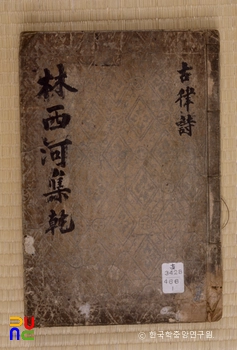 古律詩
林西河集乾
3
3428
466
1
© 한국학중앙연구원